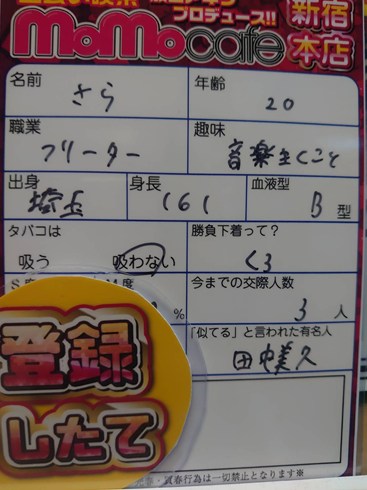 プロデュース!!
MoMo cafe
新宿
本店
名前 さら
年齢 20
職業 フリーター
趣味 音楽きくこと
出身 埼玉
身長 161
血液型 B型
タバコは
吸う 吸わない
勝負下着って?
くろ
%
今までの交際人数
3人
「似てる」と言われた有名人
田中美久
登録
したて
売春行為は一切禁止となります※